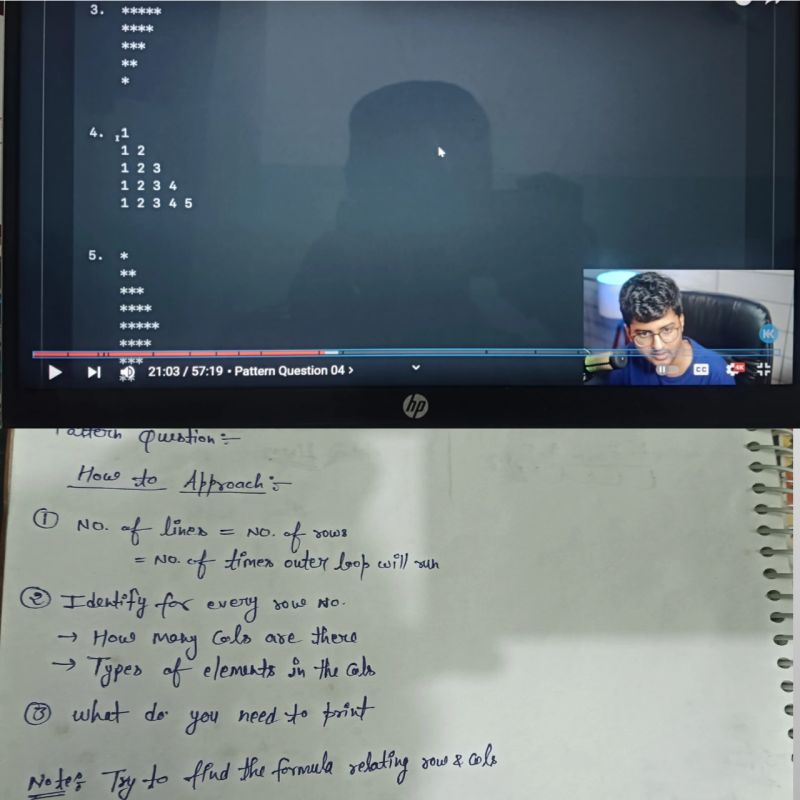 3. *****
****
***
**
*
4. 1
1 2
1 2 3
1 2 3 4
1 2 3 4 5
5. *
**
***
****
*****
****
***
**
21:03 / 57:19 • Pattern Question 04 >
CC
4K
hp
Pattern Question :-
How to Approach :-
① No. of lines = No. of rows
= No. of times outer loop will run
② Identify for every row No.
→ How many Cols are there
→ Types of elements in the Cols
③ what do you need to print
Note: Try to find the formula relating row & cols